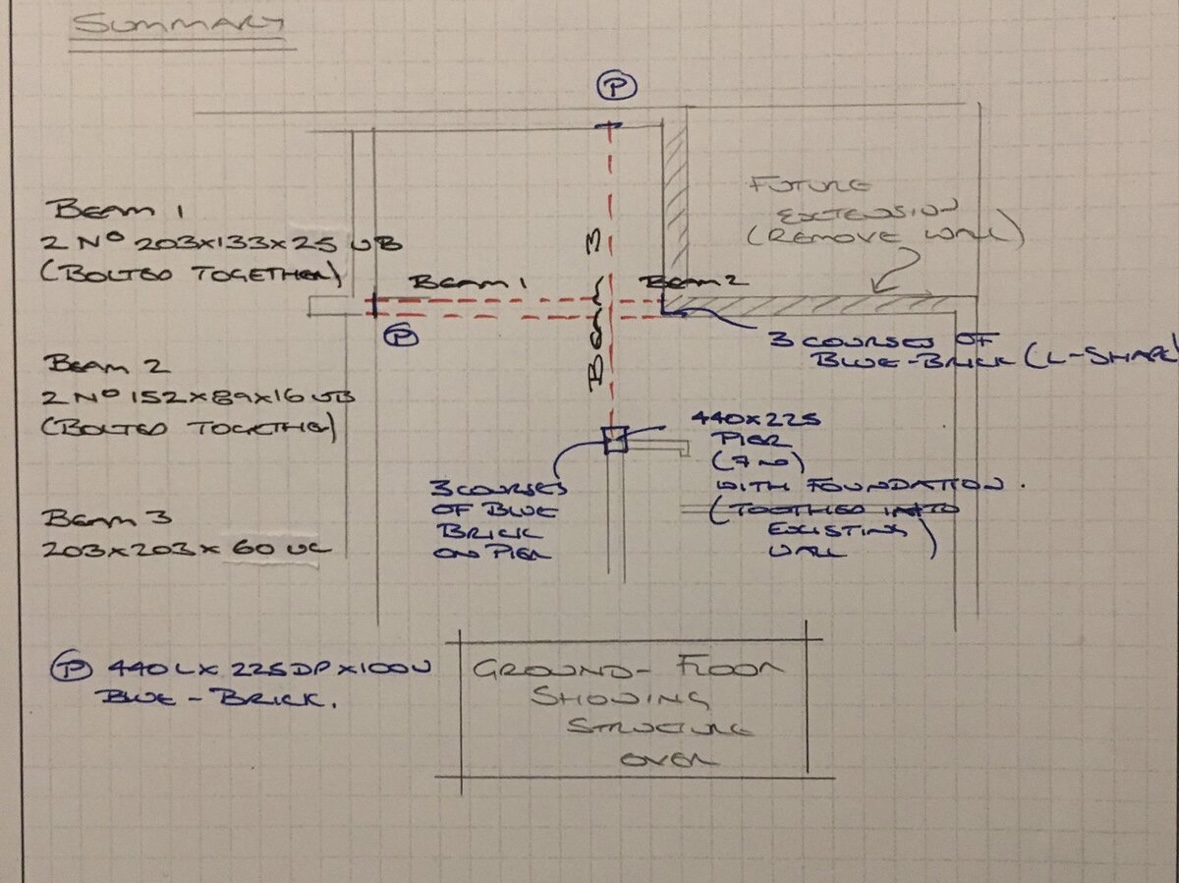 SUMMARY
P
FUTURE
EXTENSION
(REMOVE WALL)
BEAM 1
2 Nº 203x133x25 UB
(BOLTED TOGETHER)
BEAM 1
BEAM 3
BEAM 2
P
3 COURSES OF
BLUE-BRICK (L-SHAPE)
BEAM 2
2 Nº 152x89x16 UB
(BOLTED TOGETHER)
440x225
PIER
(7N)
WITH FOUNDATION.
(TOOTHED INTO
EXISTING
WALL)
3 COURSES
OF BLUE
BRICK
ON PIER
BEAM 3
203x203x60 UC
P 440Lx225DPx100W
BLUE-BRICK.
GROUND-FLOOR
SHOWING
STRUCTURE
OVER